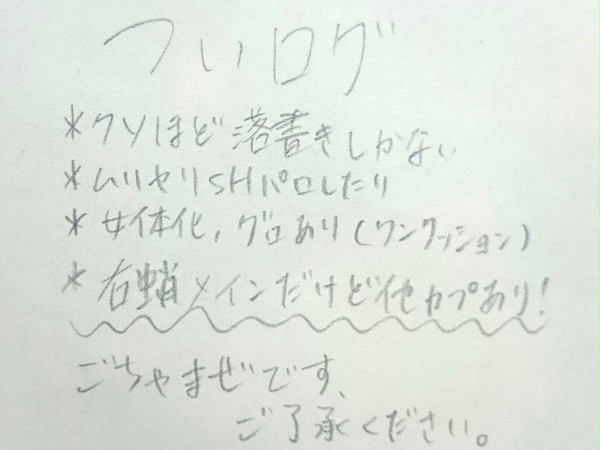 ついログ
*クソほど落書きしかない
*ムリヤリSHパロしたり
*女体化,グロあり(ワンクッション)
*右蛸メインだけど他カプあり!
ごちゃまぜです、
ご了承ください。